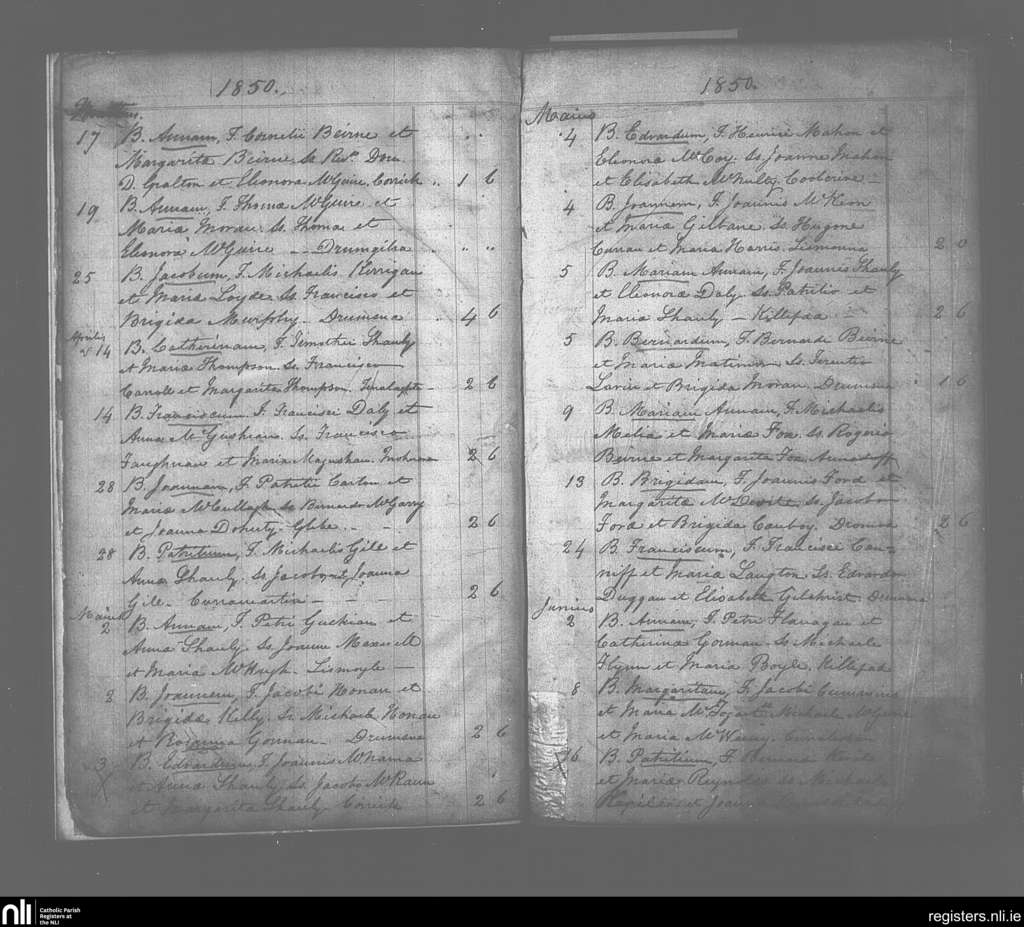 1850.
17 B. Annam, F. Cornelii Beirne et
Margarita Beirne Ss Revd. Dom.
D. Gralton et Eleonora McGuire, Corrick 1 6
19 B. Annam, F. Thoma McGuire et
Maria Moran. Ss. Thoma et
Eleonora McGuire - Drumgilra
25 B. Jacobum, F. Michaelis Kerrigan
et Maria Loyde Ss. Francisco et
Brigida Murphy - Drumena 4 6
Aprilis 14 B. Catherinam, F. Timothii Shanly
et Maria Thompson Ss. Francisco
Carroll et Margarita Thompson, 2 6
14 B. Franciscum F. Francisci Daly et
Anna McGushean. Ss. Francisco
Faughnan et Maria 2 6
28 B. Joannam, F. Patritii Carlon et
Maria McCullagh Ss Bernardo McGarry
et Joanna Doherty - Glebe 2 6
28 B. Patritium, F. Michaelis Gill et
Anna Shanly. Ss. Jacobo et Joanna
Gill - 2 6
Maius
2 B. Annam, F. Petri Gushian et
Anna Shanly. Ss. Joanne Maxwell
et Maria McHugh - Lismoyle -
2 B. Joannem, F. Jacobi Honan et
Brigida Kelly. Ss. Michaele Honan
et Gorman - Drumena 2 6
3 B. Edvardum, F. Joannis McNama
et Anna Shanly. Ss. Jacobo McRann
et Margarita Shanly Corrick 2 6
1850.
Maius
4 B. Edvardum, F. Henrici Mahon et
Eleonora McCoy. Ss. Joanne Mahon
et Elisabeth McNulty,
4 B. Joannem, F. Joannis McKeon
et Maria Gilbane Ss. Hugone
Curran et Maria Harris. Limanna 2 0
5 B. Mariam Annam, F. Joannis Shanly
et Eleonora Daly Ss. Patritio et
Maria Shanly - Killefad 2 6
5 B. Bernardum, F. Bernardi Beirne
et Maria Ss.
Lavin et Brigida Moran. Drumena 1 6
9 B. Mariam Annam, F. Michaelis
Melia et Maria Fox. Ss. Rogerio
Beirne et Margarita Fox. Annaduff
13 B. Brigidam, F. Joannis Ford et
Margarita Ss. Jacobo
Ford et Brigida Conboy. 2 6
24 B. Franciscum, F. Francisci Cun-
niff et Maria Langton Ss. Edvardo
Duggan et Elisabeth Gilchrist. Drumena
Junius
2 B. Annam, F. Petri Flanagan et
Catherina Gorman Ss. Michaele
Flynn et Maria Boyle. Killefad
8 B. Margaritam, F. Jacobi Cummins
et Maria Michaele McGuire
et Maria
16 B. Patritium, F.
et Maria Reynolds Ss. Michaele
et
nli Catholic Parish
Registers at
the NLI
registers.nli.ie